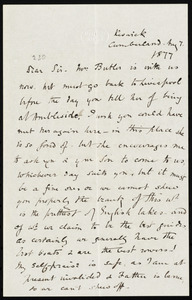 Keswick
Cumberland. Aug 7.
1877
Dear Sir. Mrs Butler is with us
now but must go back to Liverpool
before the day you tell her of being
at Ambleside. I wish you could have
met her again here - in this place she
is so fond of. but she encourages me
to ask you & your Son to come to us
whichever day suits you. it must
be a fine one or we cannot shew
you properly the beauty of this wh
is the prettiest of English lakes. and
of wh we claim to be the best guides,
as certainly we generally have the
best boats & are the best rowers!
My self praise is safe, as I am at
present invalided & Father is lame
so we can't shew off.